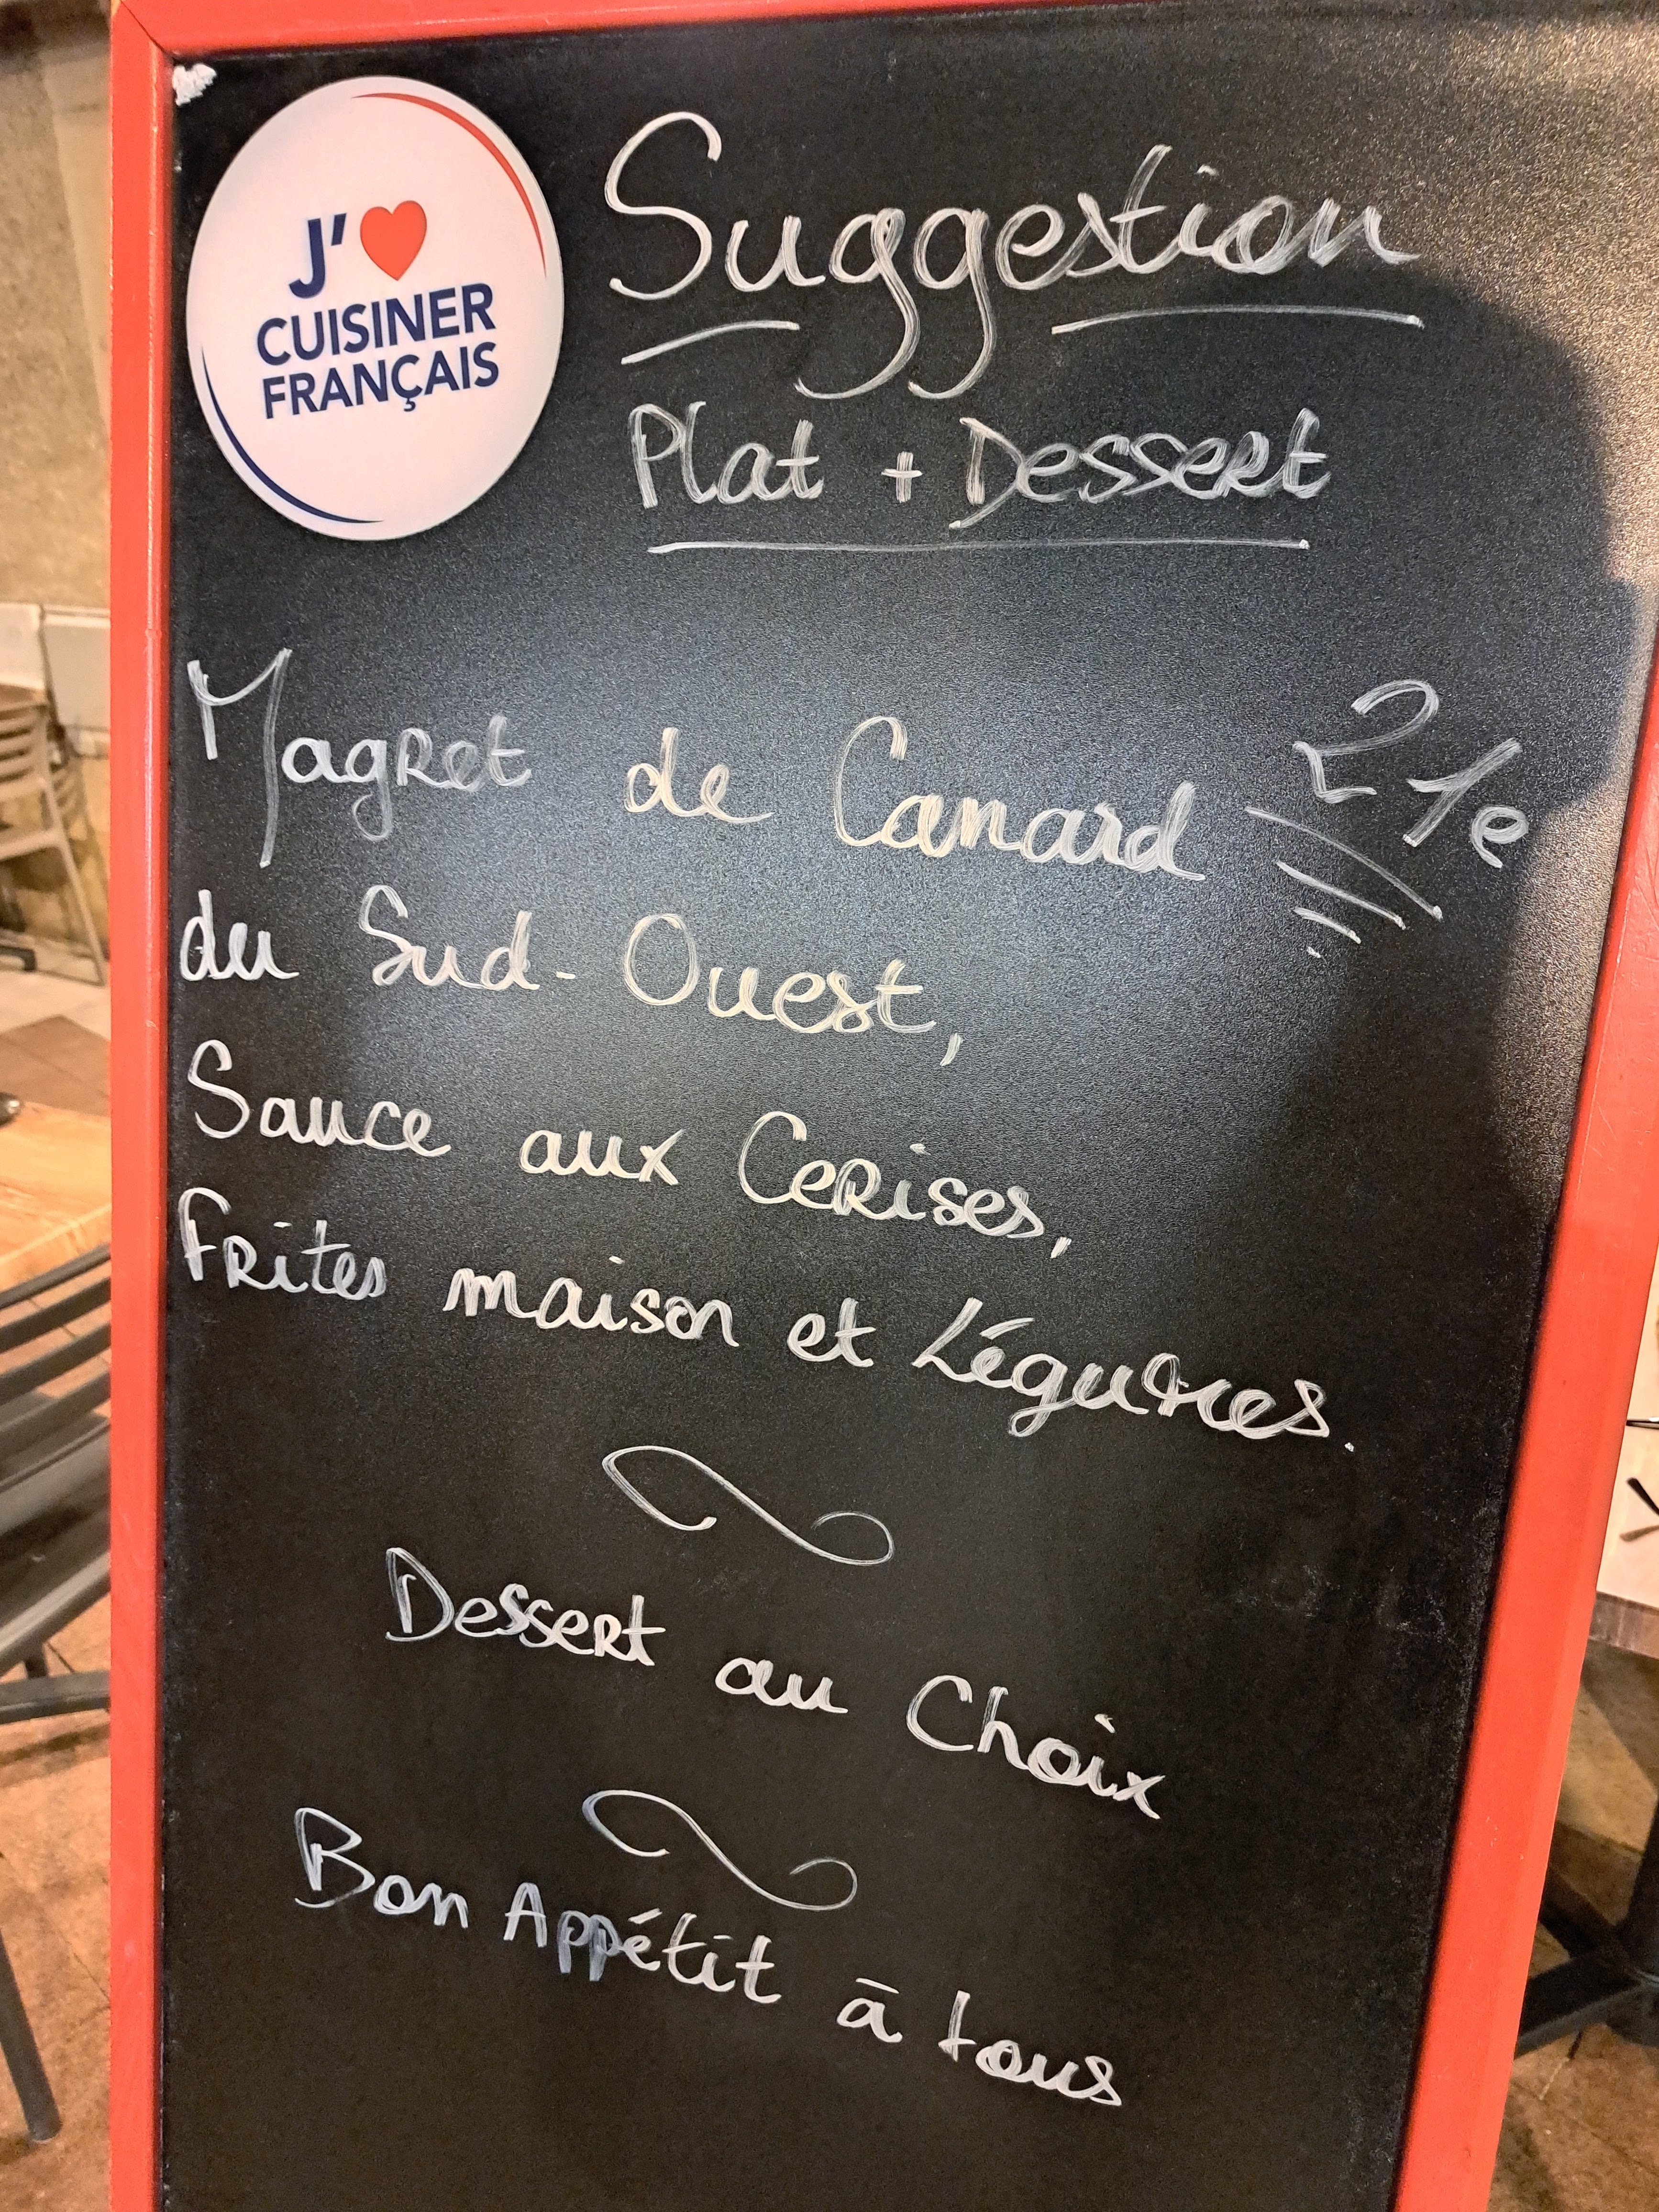 J'❤
CUISINER
FRANÇAIS
Suggestion
Plat + Dessert
Magret de Canard 21e
du Sud-Ouest,
Sauce aux Cerises,
Frites maison et Légumes.
Dessert au Choix
Bon Appétit à tous